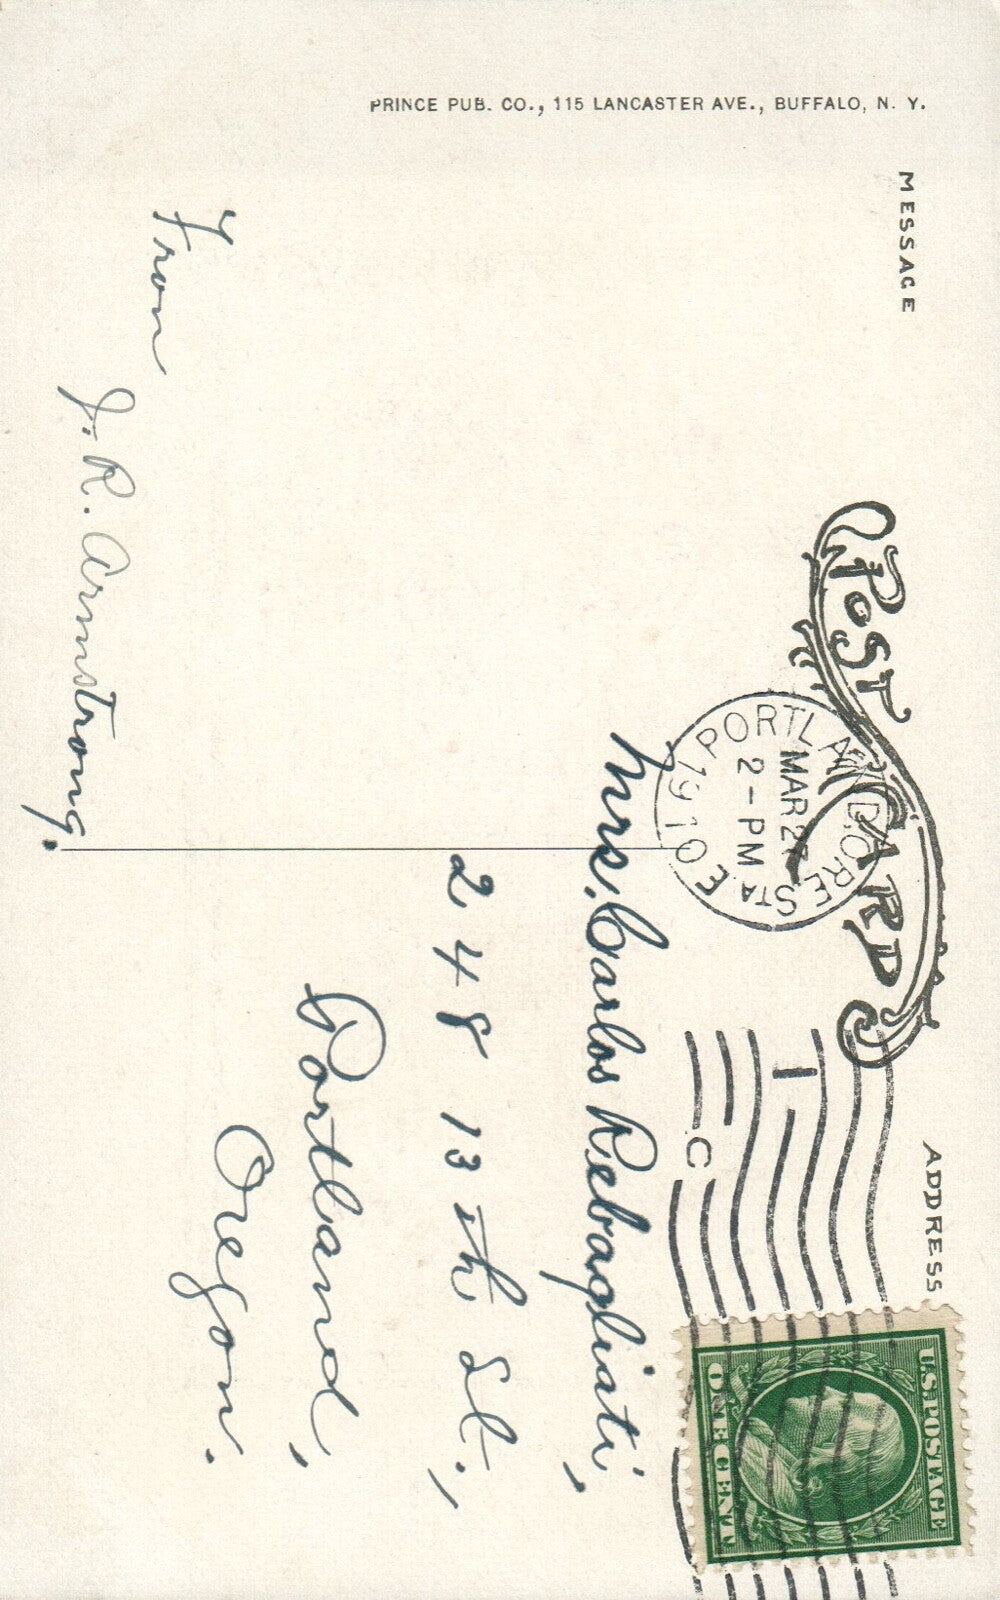 PRINCE PUB. CO., 115 LANCASTER AVE., BUFFALO, N. Y.
MESSAGE
POST CARD
ADDRESS
PORTLAND, ORE
MAR 27
2-PM
1910
STA E
1
C
U.S. POSTAGE
ONE CENT
From
J. R. Armstrong.
Mrs. Carlos Rebagliati,
248 13th St.,
Portland,
Oregon.